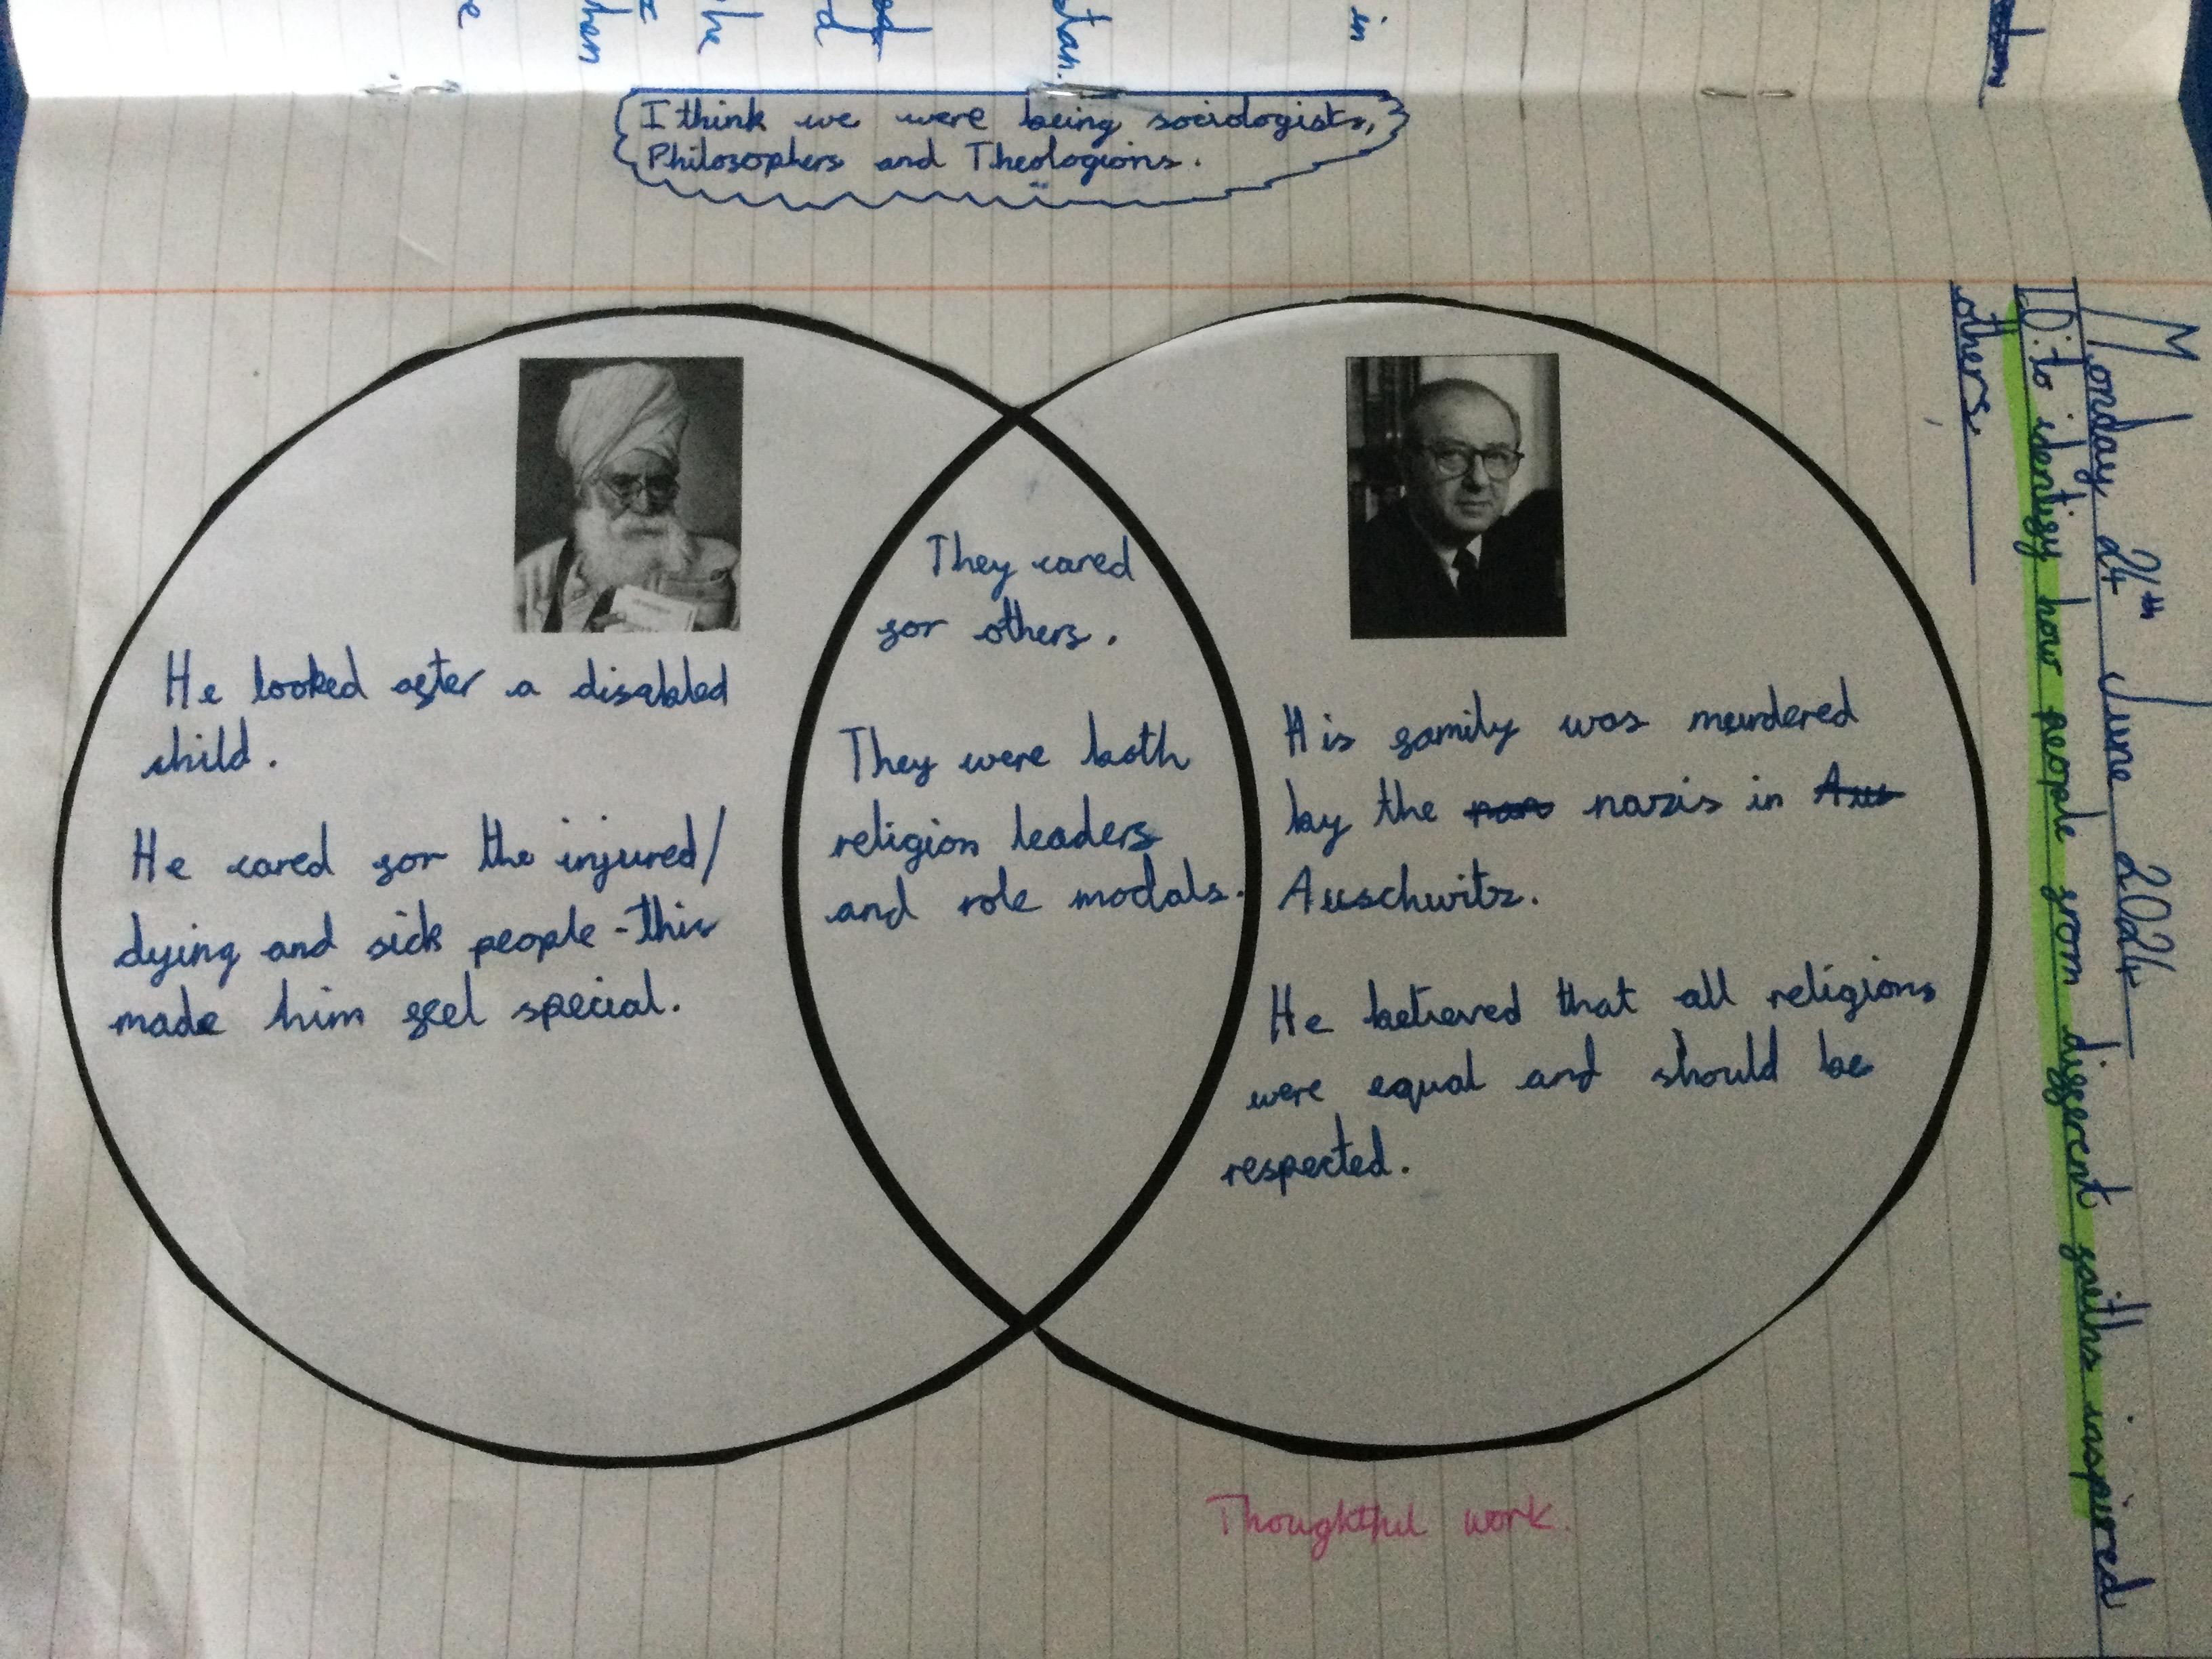 in
stan.
he
hen
e
I think we were being sociologists,
Philosophers and Theologions.
Monday 24th June 2024
LO: to identify how people from different faiths inspired
others.
He looked after a disabled
child.
He cared for the injured/
dying and sick people - this
made him feel special.
They cared
for others.
They were both
religion leaders
and role modals.
His family was murdered
by the nazis in
Auschwitz.
He believed that all religions
were equal and should be
respected.
Thoughtful work.